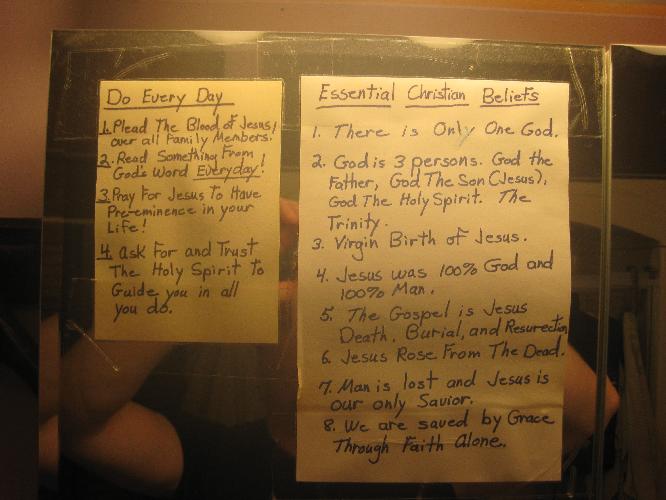 Do Every Day
1. Plead The Blood of Jesus,
over all Family Members.
2. Read Something From
God's Word Everyday!
3. Pray For Jesus To Have
Pre-eminence in your
Life!
4. ask For and Trust
The Holy Spirit To
Guide you in all
you do.
Essential Christian Beliefs
1. There is Only One God.
2. God is 3 persons. God the
Father, God The Son (Jesus),
God The Holy Spirit. The
Trinity.
3. Virgin Birth of Jesus.
4. Jesus was 100% God and
100% Man.
5. The Gospel is Jesus
Death, Burial, and Resurrection
6. Jesus Rose From The Dead.
7. Man is lost and Jesus is
our only Savior.
8. We are saved by Grace
Through Faith Alone.